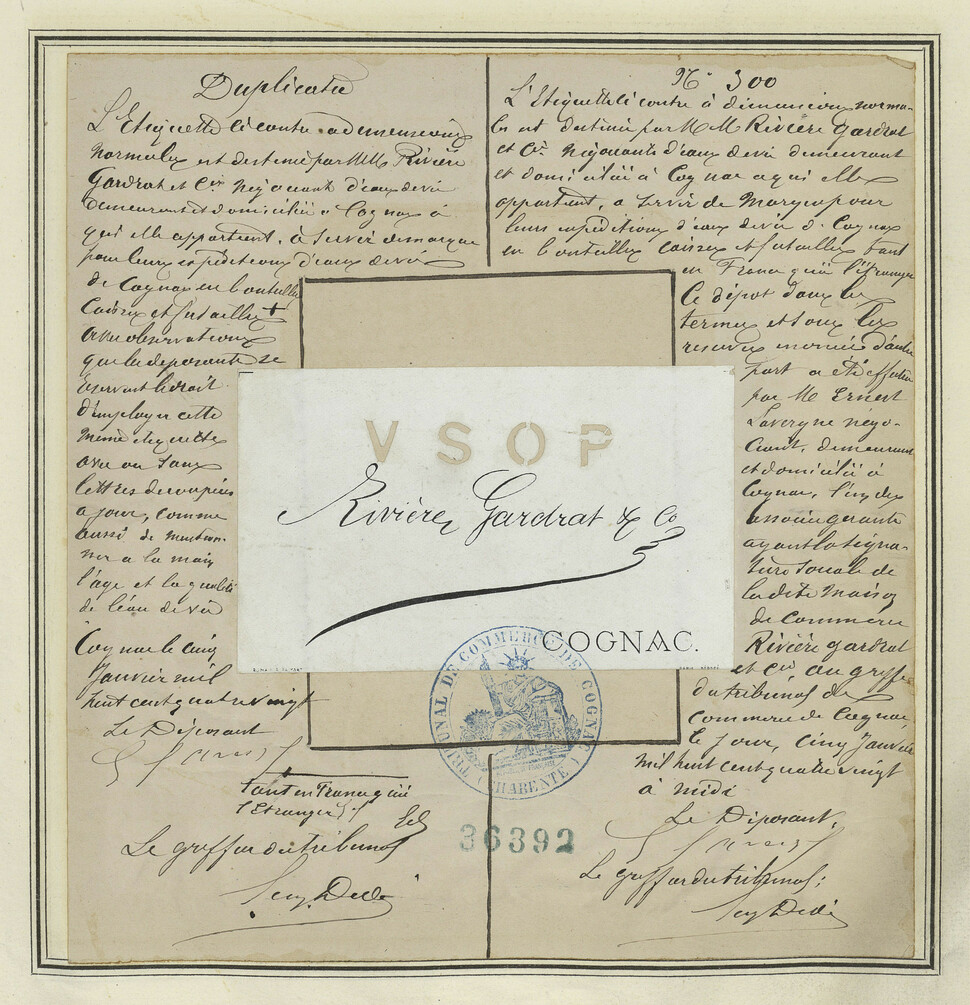 Duplicata
L'Etiquette ci contre a dimensions
normales est destinée par MM Rivière
Gardrat et Cie négociants d'eaux de vie
demeurant et domiciliés à Cognac à
qui elle appartient, à servir de marque
pour leurs expéditions d'eaux de vie
de Cognac en bouteilles
caisses et futailles +
avec observations
que les déposants se
réservent le droit
d'employer cette
même étiquette
avec ou sans
lettres découpées
à jour, comme
aussi de mention-
ner à la main
l'âge et la qualité
de l'eau de vie
Cognac le cinq
Janvier mil
huit cent quatre vingt
Le Déposant
+ tant en France qu'à
l'Etranger
Le greffier du tribunal
No 300
L'Etiquette ci contre à dimensions norma-
les est destinée par MM Rivière Gardrat
et Cie négociants d'eaux de vie demeurant
et domiciliés à Cognac a qui elle
appartient, a servir de Marque pour
leurs expéditions d'eaux de vie de Cognac
en bouteilles caisses et futailles tant
en France qu'à l'étranger
Ce dépôt dans les
termes et sous les
reserves énoncées d'autre
part a été effectué
par Mr Ernest
Lavergne négo-
ciant, demeurant
et domicilié à
Cognac, l'un des
associés gérants
ayant la signa-
ture sociale de
la dite Maison
de commerce
Rivière gardrat
et Cie au greffe
du tribunal de
Commerce de Cognac,
le jour, cinq Janvier
mil huit cent quatre vingt
à midi
Le Déposant,
Le greffier du tribunal;
VSOP
Rivière, Gardrat & Co
COGNAC.
TRIBUNAL DE COMMERCE DE COGNAC
(CHARENTE)
36392